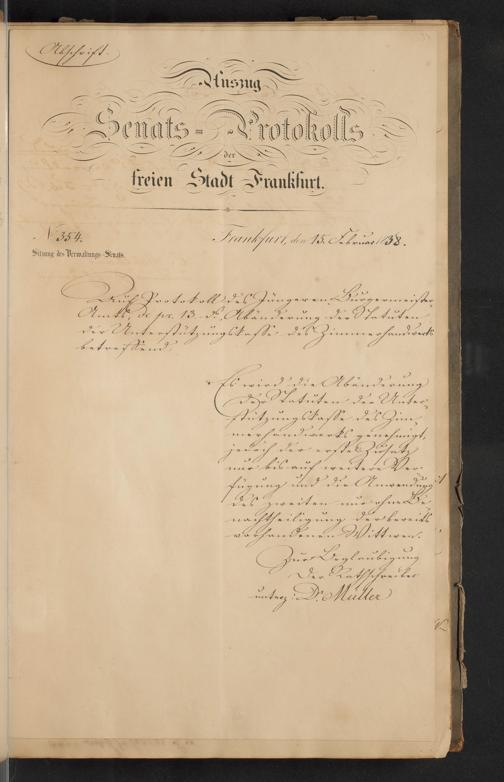 Abschrift.
Auszug
Senats-Protokolls
der
freien Stadt Frankfurt.
N. 354.
Frankfurt, den 15. Februar 1838.
Sitzung des Verwaltungs-Senats.
Auf Protokoll des Jüngeren Bürgermeister
Amts, de pr. 13. d., Abänderung der Statuten
der Unterstützungskasse des Zimmerhandwerks
betreffend.
Es wird die Abänderung
der Statuten der Unter-
stützungskasse des Zim-
merhandwerks genehmigt,
jedoch der erste Zusatz
nur bis auf weitere Ver-
fügung und die Anwendung
des zweiten nur ohne Be-
nachtheiligung der bereits
vorhandenen Wittwen.
Zur Beglaubigung
Der Rathschreiber
unterz: Dr. Müller